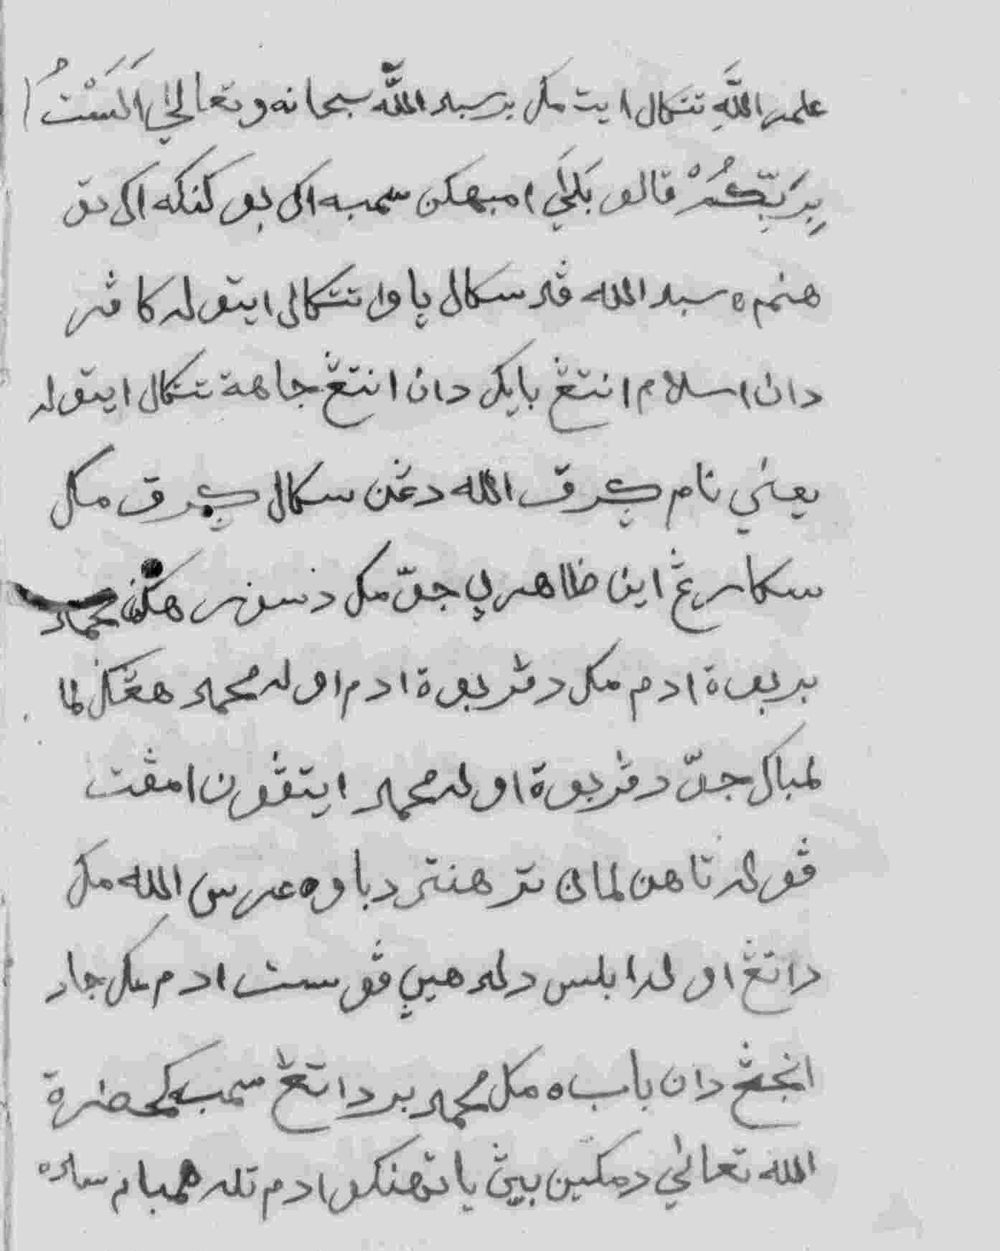 علم الله تتكال ايت مك برسبد الله سبحانه وتعالى اَلَسْتُ
بِرَبِّكُمْ قالو بَلَى امبهكن سمبه اكي بو كنكه اكي تق
هنم٥ سبد الله ڤد سكال ڽاوا تتكال ايتوله كافر
دان اسلام انتڠ بايك دان انتڠ جاهة تتكال ايتوله
يعني نام چرق الله دڠن سكال چرق مك
سكارڠ اين ظاهرڽ جوّ مك دسورهكن محمد
بربوة ادم مك دڤربوة ادم اوله محمد هڠكل لما
لمباك جوّ دڤربوة اوله محمد ايتڤون امڤت
ڤوله تاهن لمان ترهنتر دباوه عرس الله مك
داتڠ اوله ابليس دلدهيڽ ڤوست ادم مك جاد
انجڠ دان باب٥ مك محمد برداتڠ سمبه كحضرة
الله تعالى دمكين بيڽ يا توهنكو ادم تله همبام